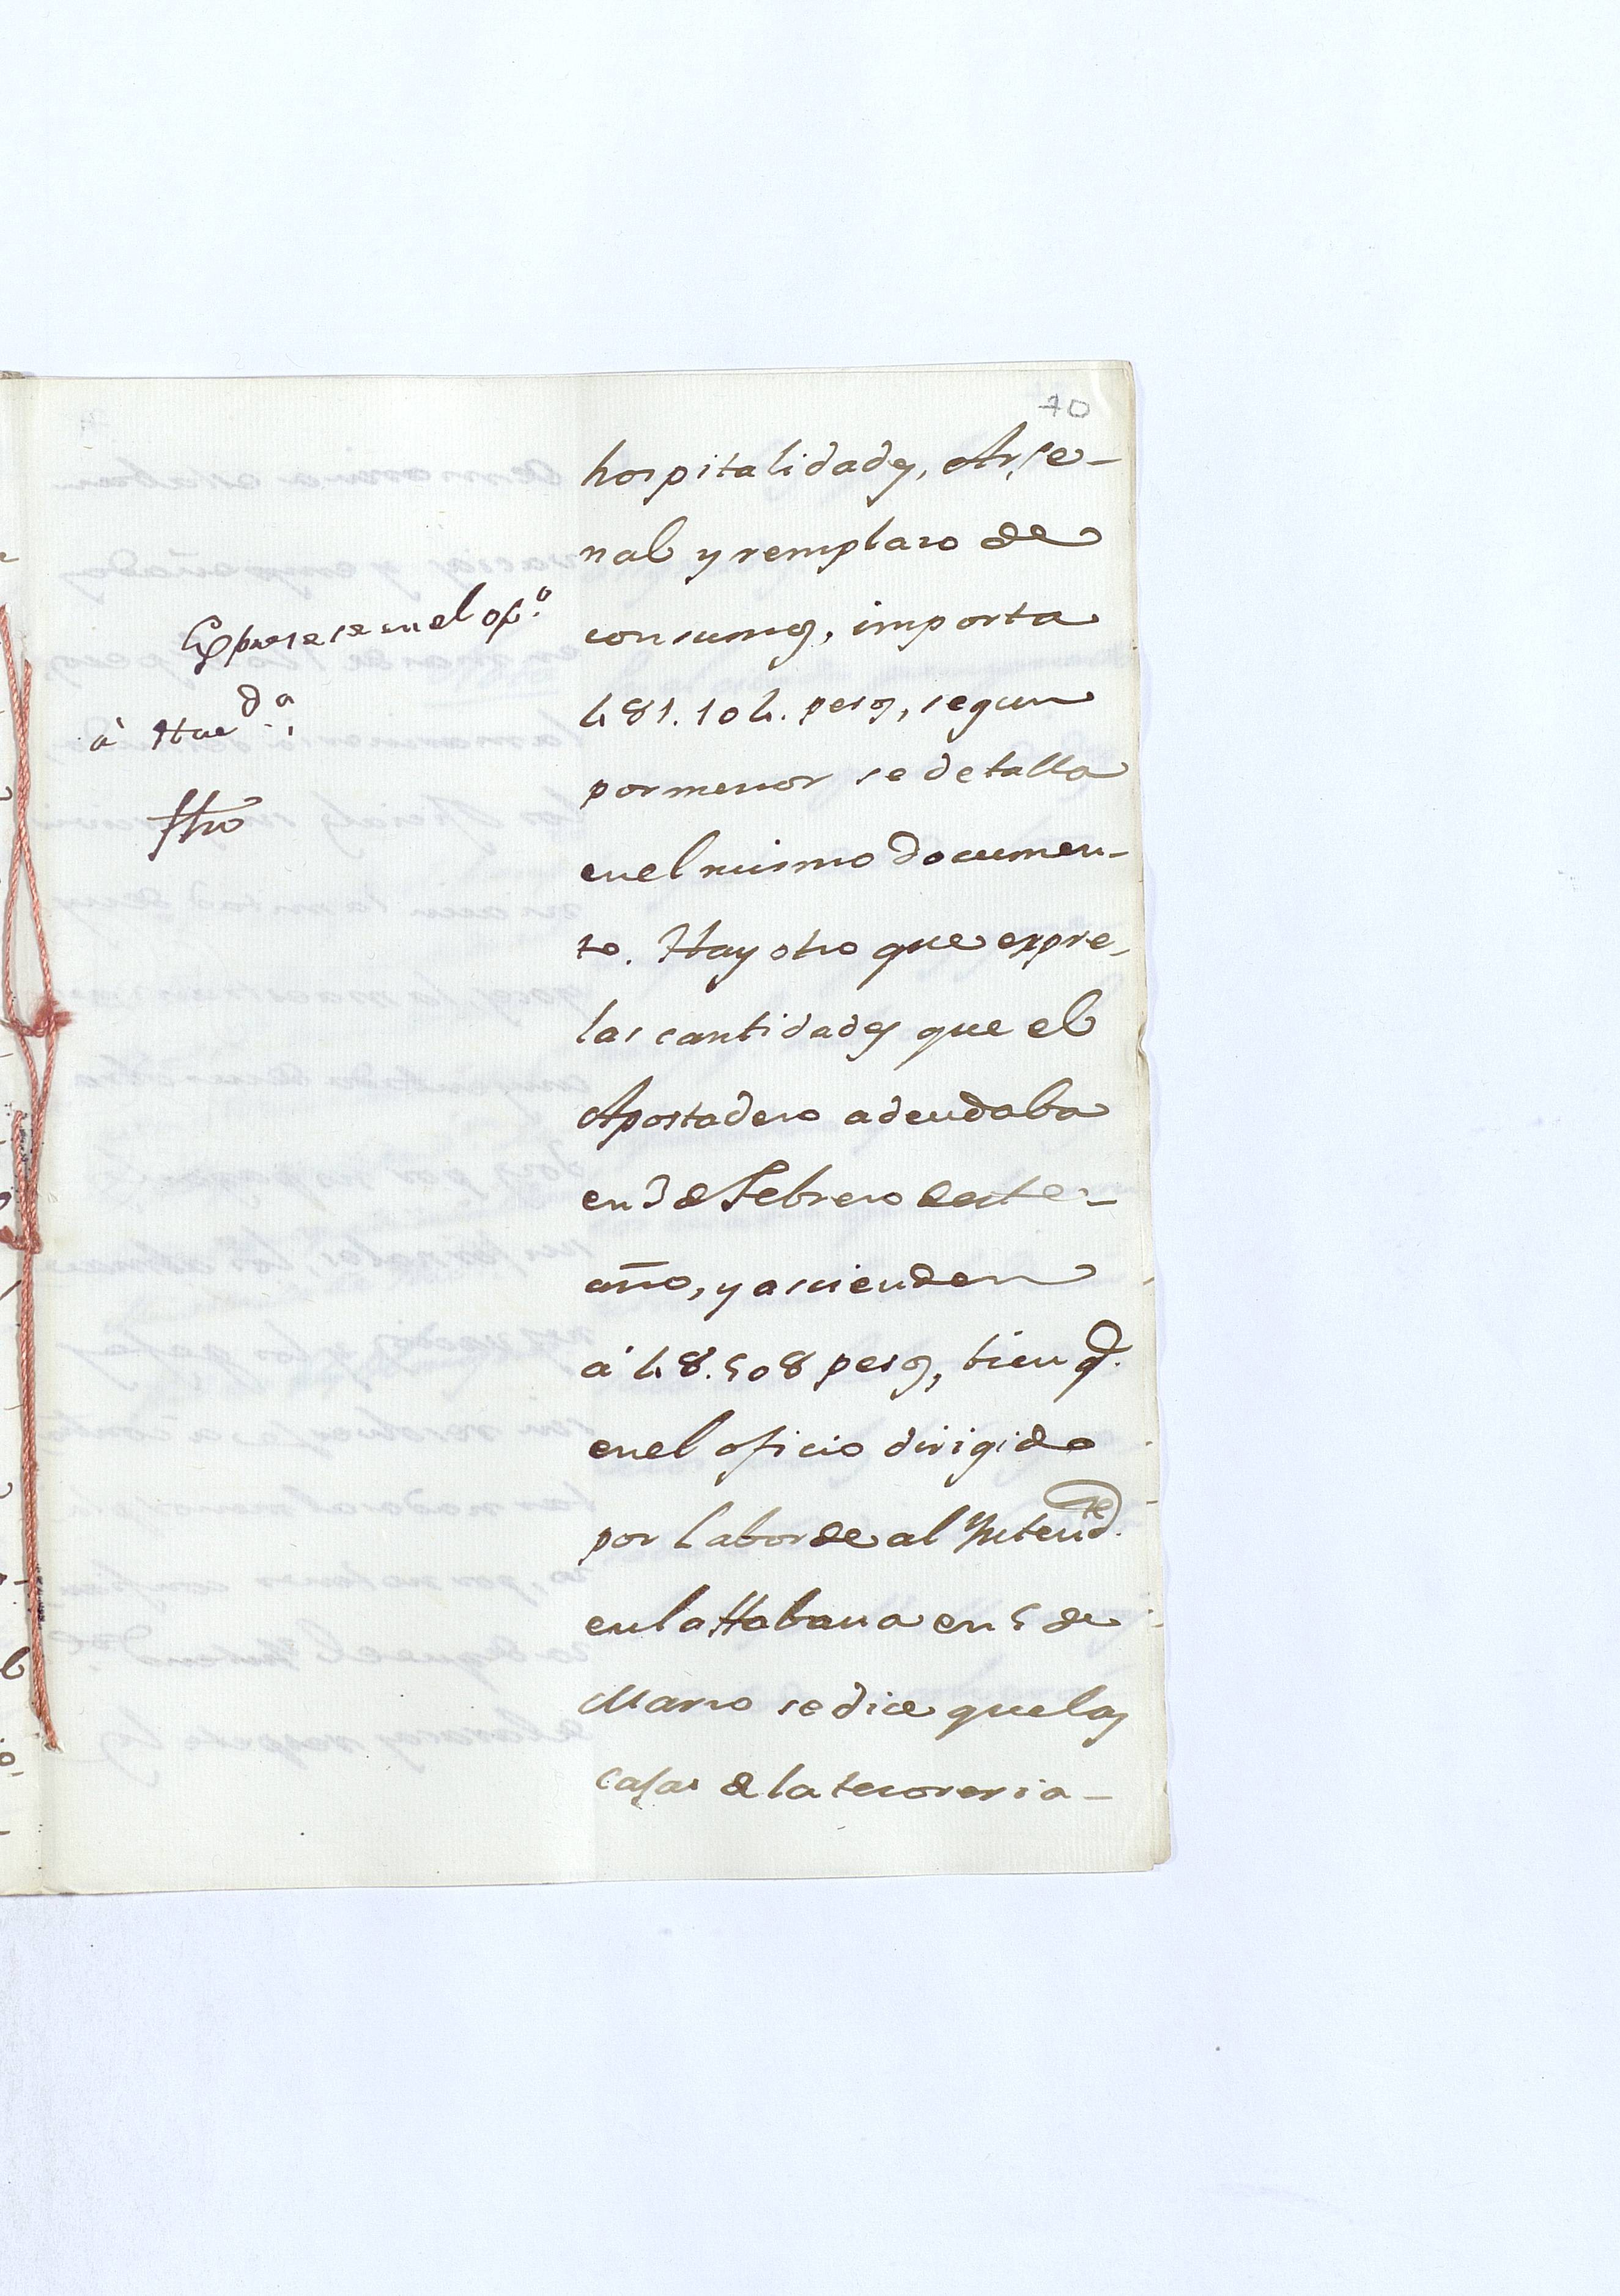 70
hospitalidades, Arse-
nal y remplazo de
consumos, importa
481.104. pesos, segun
por menor se detalla
en el mismo documen-
to. Hay otro que expre-
las cantidades que el
Apostadero adeudaba
en 3 de Febrero deste-
año, y ascienden
á 48.508 pesos, bien q.
en el oficio dirigido
por Laborde al Yntend.te
en la Habana en 5 de
Marzo se dice que las
cajas de la tesoreria-
Exprese se en el of.o
à Hac.da
fho